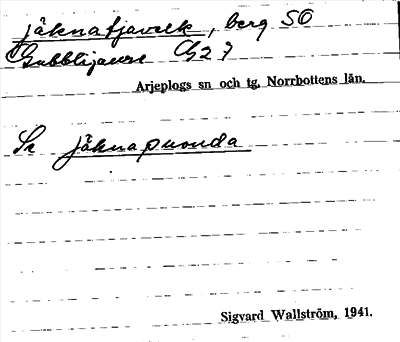 jäknatjavelk, berg SO
Gubblijaure Ch2 7
Arjeplogs sn och tg, Norrbottens län.
Se jäknapuouda
Sigvard Wallström, 1941.